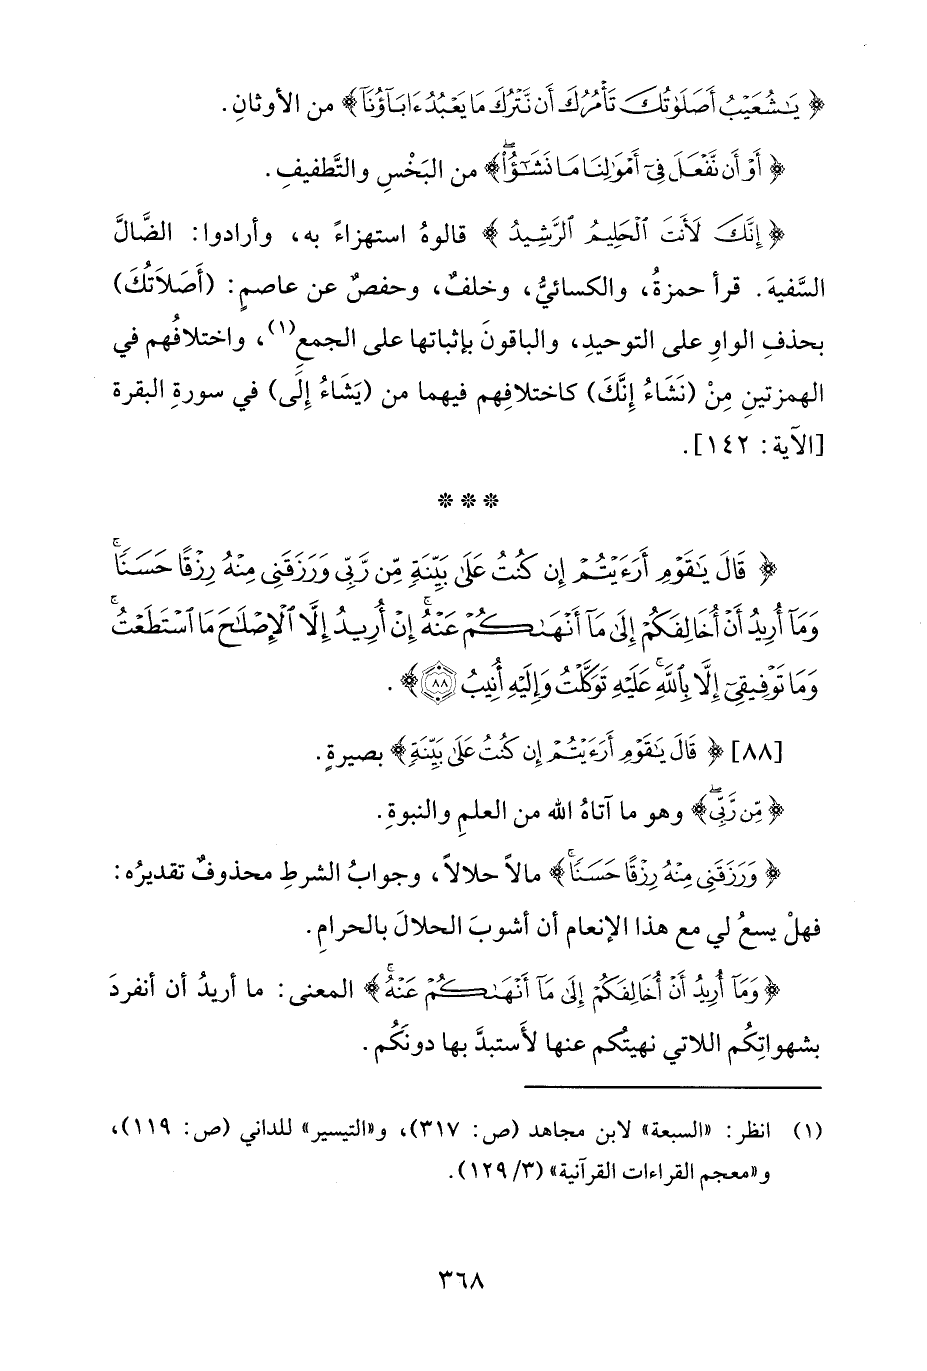 ﴿ يَٰشُعَيْبُ أَصَلَوٰتُكَ تَأْمُرُكَ أَن نَّتْرُكَ مَا يَعْبُدُ ءَابَآؤُنَآ ﴾ من الأوثانِ.
﴿ أَوْ أَن نَّفْعَلَ فِىٓ أَمْوَٰلِنَا مَا نَشَٰٓؤُا۟ۖ ﴾ من البَخْسِ والتَّطفيفِ.
﴿ إِنَّكَ لَأَنتَ ٱلْحَلِيمُ ٱلرَّشِيدُ ﴾ قالوهُ استهزاءً به، وأرادوا: الضَّالَّ
السَّفيهَ. قرأ حمزةُ، والكسائيُّ، وخلفٌ، وحفصٌ عن عاصمٍ: (أَصَلاَتُكَ)
بحذفِ الواوِ على التوحيدِ، والباقونَ بإثباتها على الجمعِ(١)، واختلافُهم في
الهمزتينِ مِنْ (نَشَاءُ إِنَّكَ) كاختلافِهم فيهما من (يَشَاءُ إِلَى) في سورةِ البقرة
[الآية: ١٤٢].
* * *
﴿ قَالَ يَٰقَوْمِ أَرَءَيْتُمْ إِن كُنتُ عَلَىٰ بَيِّنَةٍ مِّن رَّبِّى وَرَزَقَنِى مِنْهُ رِزْقًا حَسَنًاۚ
وَمَآ أُرِيدُ أَنْ أُخَالِفَكُمْ إِلَىٰ مَآ أَنْهَىٰكُمْ عَنْهُۚ إِنْ أُرِيدُ إِلَّا ٱلْإِصْلَٰحَ مَا ٱسْتَطَعْتُۚ
وَمَا تَوْفِيقِىٓ إِلَّا بِٱللَّهِۚ عَلَيْهِ تَوَكَّلْتُ وَإِلَيْهِ أُنِيبُ ٨٨ ﴾.
[٨٨] ﴿ قَالَ يَٰقَوْمِ أَرَءَيْتُمْ إِن كُنتُ عَلَىٰ بَيِّنَةٍ ﴾ بصيرةٍ.
﴿ مِّن رَّبِّىۖ ﴾ وهو ما آتاهُ الله من العلمِ والنبوةِ.
﴿ وَرَزَقَنِى مِنْهُ رِزْقًا حَسَنًاۚ ﴾ مالاً حلالاً، وجوابُ الشرطِ محذوفٌ تقديرُه:
فهلْ يسعُ لي مع هذا الإنعام أن أشوبَ الحلالَ بالحرامِ.
﴿ وَمَآ أُرِيدُ أَنْ أُخَالِفَكُمْ إِلَىٰ مَآ أَنْهَىٰكُمْ عَنْهُۚ ﴾ المعنى: ما أريدُ أن أنفردَ
بشهواتِكُم اللاتي نهيتُكم عنها لأَستبدَّ بها دونَكُم.
(١) انظر: «السبعة» لابن مجاهد (ص: ٣١٧)، و«التيسير» للداني (ص: ١١٩)،
و«معجم القراءات القرآنية» (٣/ ١٢٩).
٣٦٨